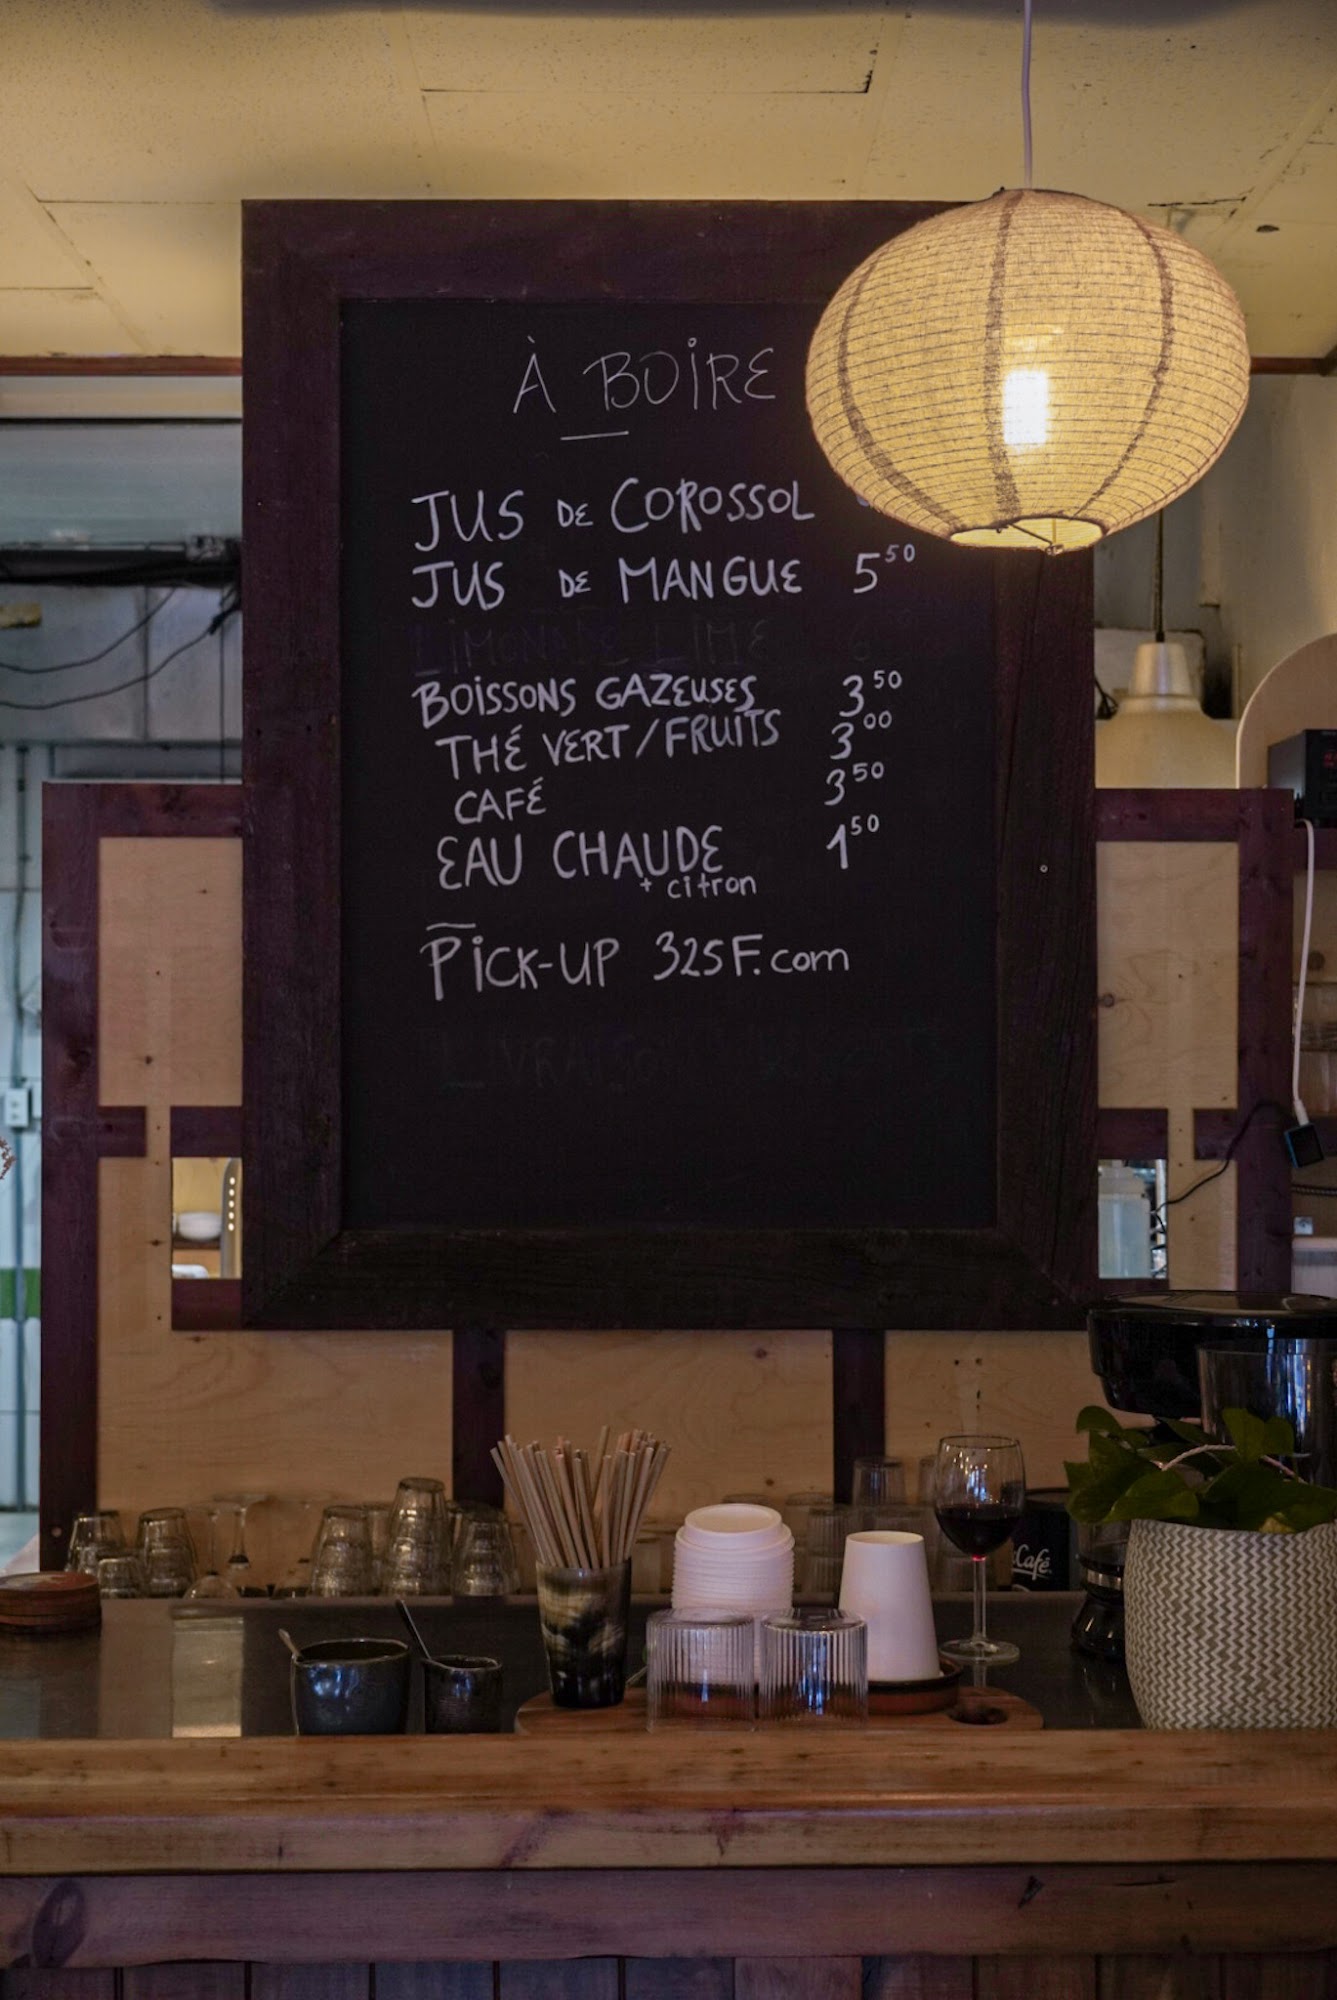 À BOIRE
JUS DE COROSSOL
JUS DE MANGUE 5.50
LIMONADE LIME 6
BOISSONS GAZEUSES 3.50
THÉ VERT/FRUITS 3.00
CAFÉ 3.50
EAU CHAUDE 1.50
+ citron
PICK-UP 325F.com
Café